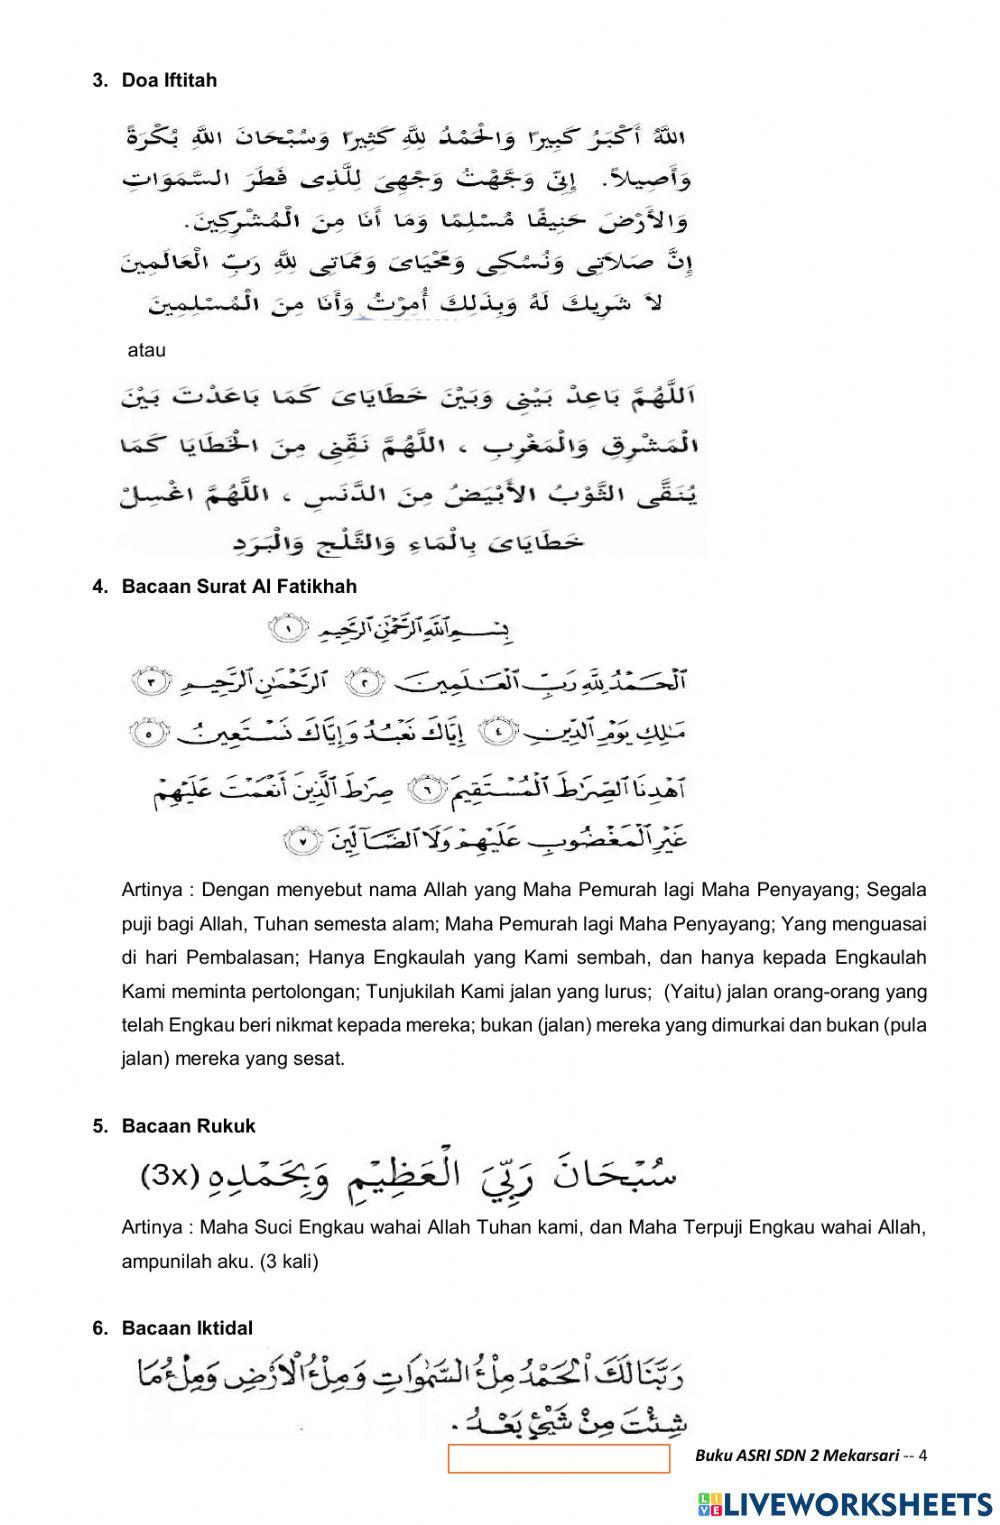 3. Doa Iftitah
اللهُ أَكْبَرُ كَبِيرًا وَالْحَمْدُ لِلَّهِ كَثِيرًا وَسُبْحَانَ اللهِ بُكْرَةً
وَأَصِيلاً. إِنِّى وَجَّهْتُ وَجْهِيَ لِلَّذِى فَطَرَ السَّمَوَاتِ
وَالأَرْضَ حَنِيفًا مُسْلِمًا وَمَا أَنَا مِنَ الْمُشْرِكِينَ.
إِنَّ صَلاَتِى وَنُسُكِى وَمَحْيَاىَ وَمَمَاتِى لِلَّهِ رَبِّ الْعَالَمِينَ
لاَ شَرِيكَ لَهُ وَبِذَلِكَ أُمِرْتُ وَأَنَا مِنَ الْمُسْلِمِينَ
atau
اَللَّهُمَّ بَاعِدْ بَيْنِى وَبَيْنَ خَطَايَاىَ كَمَا بَاعَدْتَ بَيْنَ
الْمَشْرِقِ وَالْمَغْرِبِ ، اللَّهُمَّ نَقِّنِى مِنَ الْخَطَايَا كَمَا
يُنَقَّى الثَّوْبُ الأَبْيَضُ مِنَ الدَّنَسِ ، اللَّهُمَّ اغْسِلْ
خَطَايَاىَ بِالْمَاءِ وَالثَّلْجِ وَالْبَرَدِ
4. Bacaan Surat Al Fatikhah
بِسْمِ ٱللَّهِ ٱلرَّحْمَٰنِ ٱلرَّحِيمِ ١
ٱلْحَمْدُ لِلَّهِ رَبِّ ٱلْعَٰلَمِينَ ٢ ٱلرَّحْمَٰنِ ٱلرَّحِيمِ ٣
مَٰلِكِ يَوْمِ ٱلدِّينِ ٤ إِيَّاكَ نَعْبُدُ وَإِيَّاكَ نَسْتَعِينُ ٥
ٱهْدِنَا ٱلصِّرَٰطَ ٱلْمُسْتَقِيمَ ٦ صِرَٰطَ ٱلَّذِينَ أَنْعَمْتَ عَلَيْهِمْ
غَيْرِ ٱلْمَغْضُوبِ عَلَيْهِمْ وَلَا ٱلضَّآلِّينَ ٧
Artinya : Dengan menyebut nama Allah yang Maha Pemurah lagi Maha Penyayang; Segala
puji bagi Allah, Tuhan semesta alam; Maha Pemurah lagi Maha Penyayang; Yang menguasai
di hari Pembalasan; Hanya Engkaulah yang Kami sembah, dan hanya kepada Engkaulah
Kami meminta pertolongan; Tunjukilah Kami jalan yang lurus; (Yaitu) jalan orang-orang yang
telah Engkau beri nikmat kepada mereka; bukan (jalan) mereka yang dimurkai dan bukan (pula
jalan) mereka yang sesat.
5. Bacaan Rukuk
سُبْحَانَ رَبِّيَ الْعَظِيْمِ وَبِحَمْدِهِ (3x)
Artinya : Maha Suci Engkau wahai Allah Tuhan kami, dan Maha Terpuji Engkau wahai Allah,
ampunilah aku. (3 kali)
6. Bacaan Iktidal
رَبَّنَا لَكَ الْحَمْدُ مِلْءُ السَّمٰوَاتِ وَمِلْءُ الْاَرْضِ وَمِلْءُ مَا
شِئْتَ مِنْ شَيْءٍ بَعْدُ .
Buku ASRI SDN 2 Mekarsari -- 4
LIVE LIVEWORKSHEETS